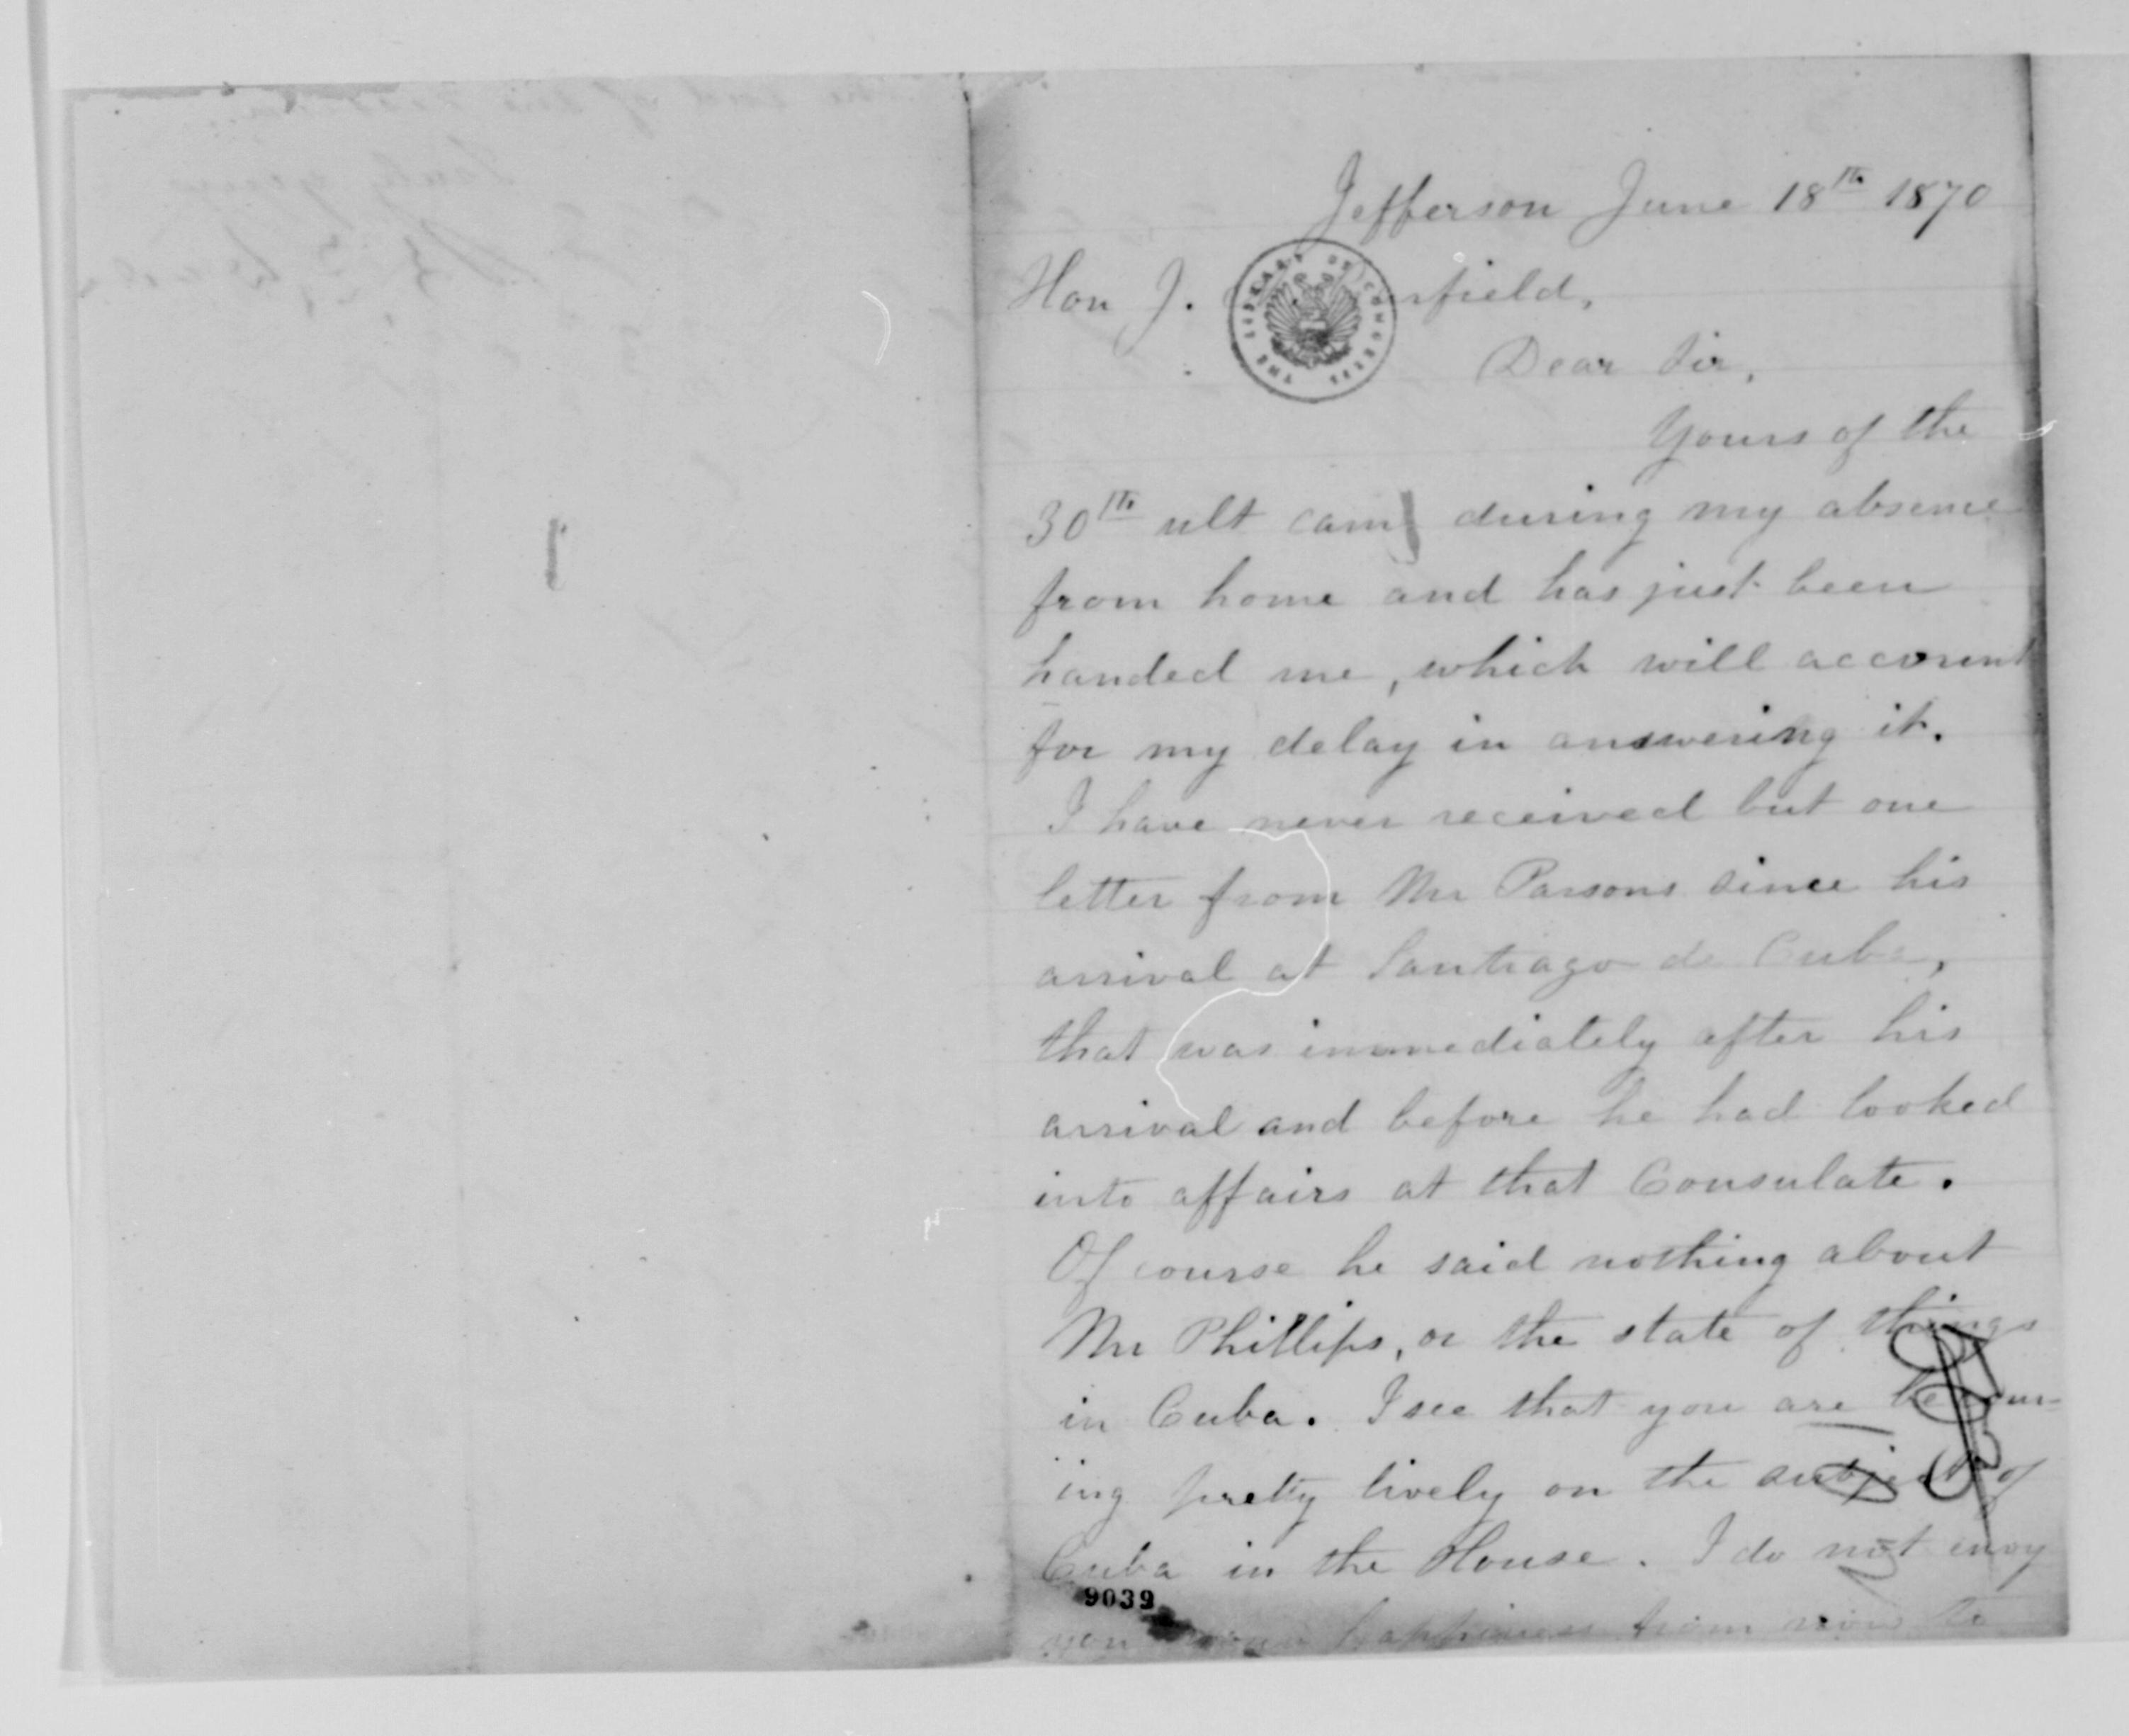 Jefferson June 18th 1870
Hon J. rfield,
THE LIBRARY OF CONGRESS
Dear Sir,
Yours of the
30th ult came during my absence
from home and has just been
handed me, which will account
for my delay in answering it.
I have never received but one
letter from Mr Parsons since his
arrival at Santiago de Cuba,
that was immediately after his
arrival and before he had looked
into affairs at that Consulate.
Of course he said nothing about
Mr Phillips, or the state of things
in Cuba. I see that you are becom-
ing pretty lively on the subject of
Cuba in the House. I do not envy
9039
you your happiness from now to